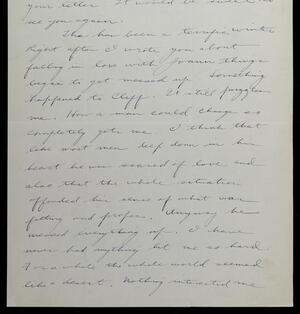 your letter. It would be
see you again.
This has been a terrific winter
Right after I wrote you about
falling in love with Joann things
began to get messed up. Something
happened to Cliff. It still puzzles
me. How a man could change so
completely gets me. I think that
like most men deep down in his
heart he was scared of love and
also that the whole situation
offended his sense of what was
fitting and proper. Anyway he
messed everything up. I have
never had anything hit me so hard.
For a while the whole world seemed
like a desert. Nothing interested me